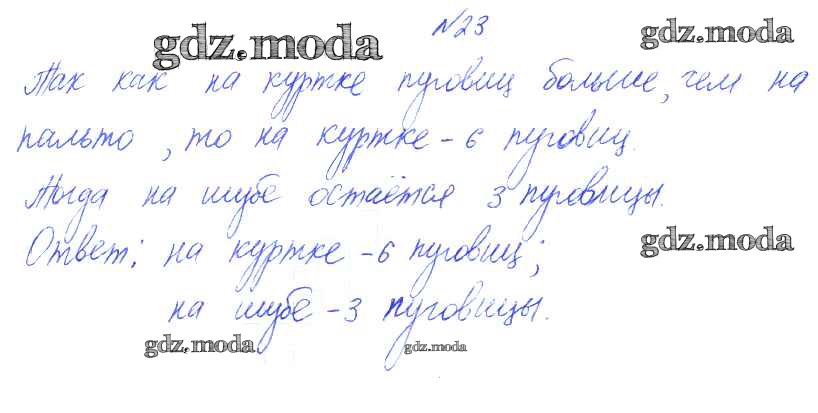 №23
gdz.moda
gdz.moda
Так как на куртке пуговиц больше, чем на
пальто, то на куртке - 6 пуговиц.
Тогда на шубе остаётся 3 пуговицы.
Ответ: на куртке - 6 пуговиц;
gdz.moda
на шубе - 3 пуговицы.
gdz.moda
gdz.moda